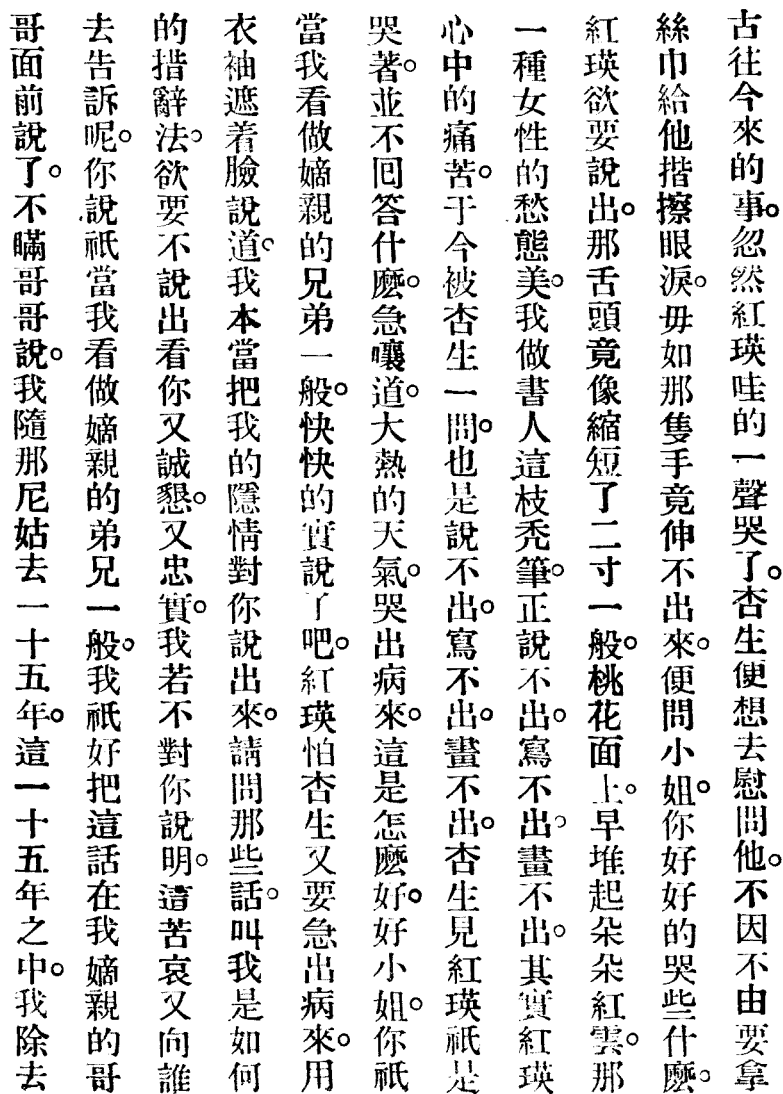 古往今來的事。忽然紅瑛哇的一聲哭了。杏生便想去慰問他。不因不由要拿
絲巾給他揩擦眼淚。毋如那隻手竟伸不出來。便問小姐。你好好的哭些什麽。
紅瑛欲要說出。那舌頭竟像縮短了二寸一般。桃花面上。早堆起朵朵紅雲。那
一種女性的愁態美。我做書人這枝禿筆。正說不出。寫不出。畫不出。其實紅瑛
心中的痛苦。于今被杏生一問。也是說不出。寫不出。畫不出。杏生見紅瑛祇是
哭著。並不回答什麽。急嚷道。大熱的天氣。哭出病來。這是怎麽好。好小姐。你祇
當我看做嫡親的兄弟一般。快快的實說了吧。紅瑛怕杏生又要急出病來。用
衣袖遮着臉說道。我本當把我的隱情對你說出來。請問那些話。叫我是如何
的措辭法。欲要不說出看你又誠懇。又忠實。我若不對你說明。這苦哀又向誰
去告訴呢。你說祇當我看做嫡親的弟兄一般。我祇好把這話在我嫡親的哥
哥面前說了。不瞞哥哥說。我隨那尼姑去一十五年。這一十五年之中。我除去